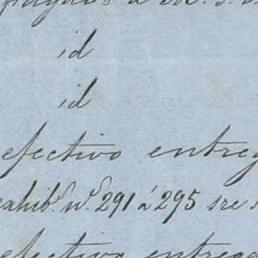 id
id
efectivo entreg
cahib.s n.s 291 a 295 sre
efectivo entrega